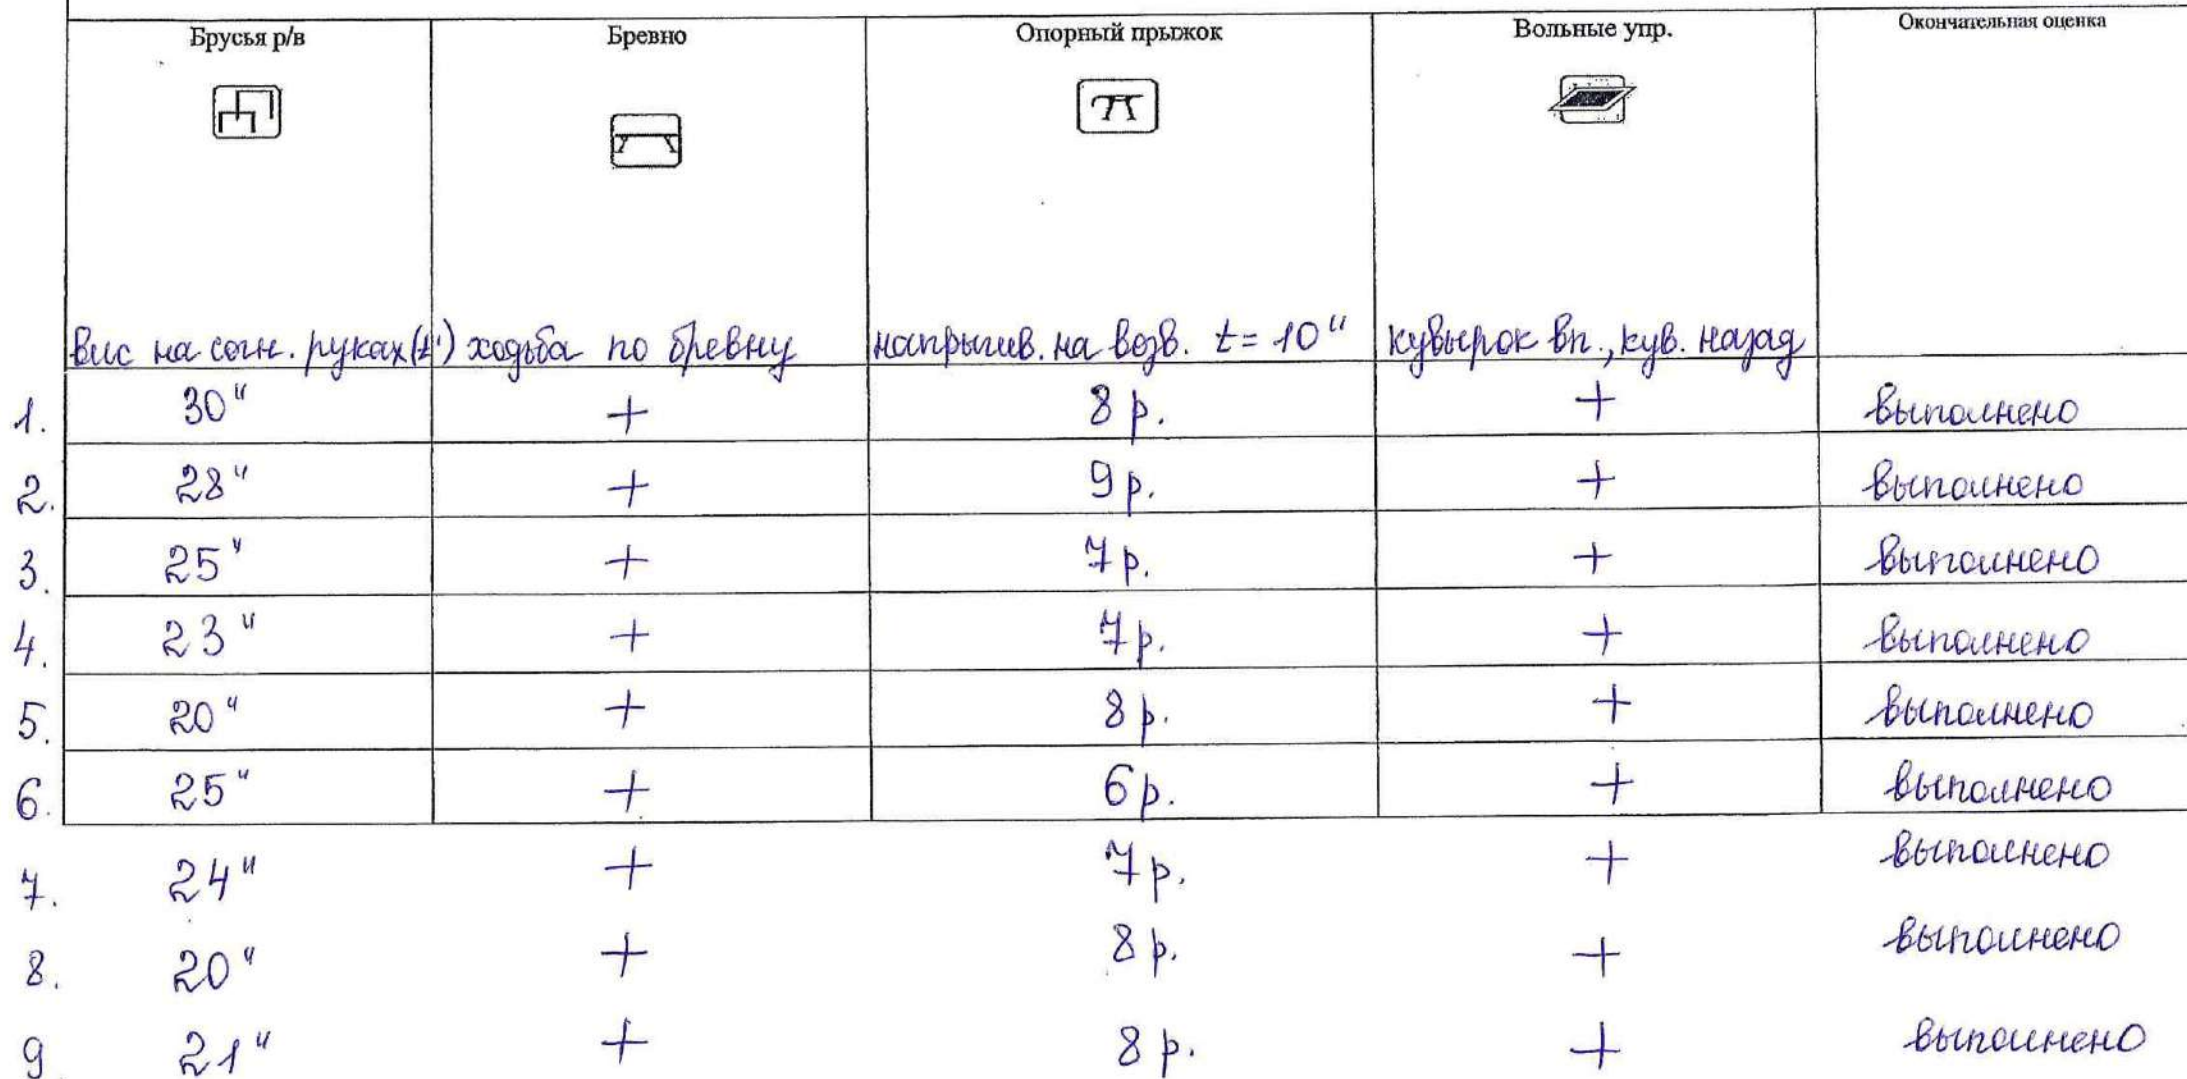 Брусья р/в Бревно Опорный прыжок Вольные упр. Окончательная оценка
вис на согн. руках (t") ходьба по бревну напрыгив. на возв. t = 10" кувырок вп., кув. назад
1. 30" + 8 р. + выполнено
2. 28" + 9 р. + выполнено
3. 25" + 7 р. + выполнено
4. 23" + 7 р. + выполнено
5. 20" + 8 р. + выполнено
6. 25" + 6 р. + выполнено
7. 24" + 7 р. + выполнено
8. 20" + 8 р. + выполнено
9 21" + 8 р. + выполнено